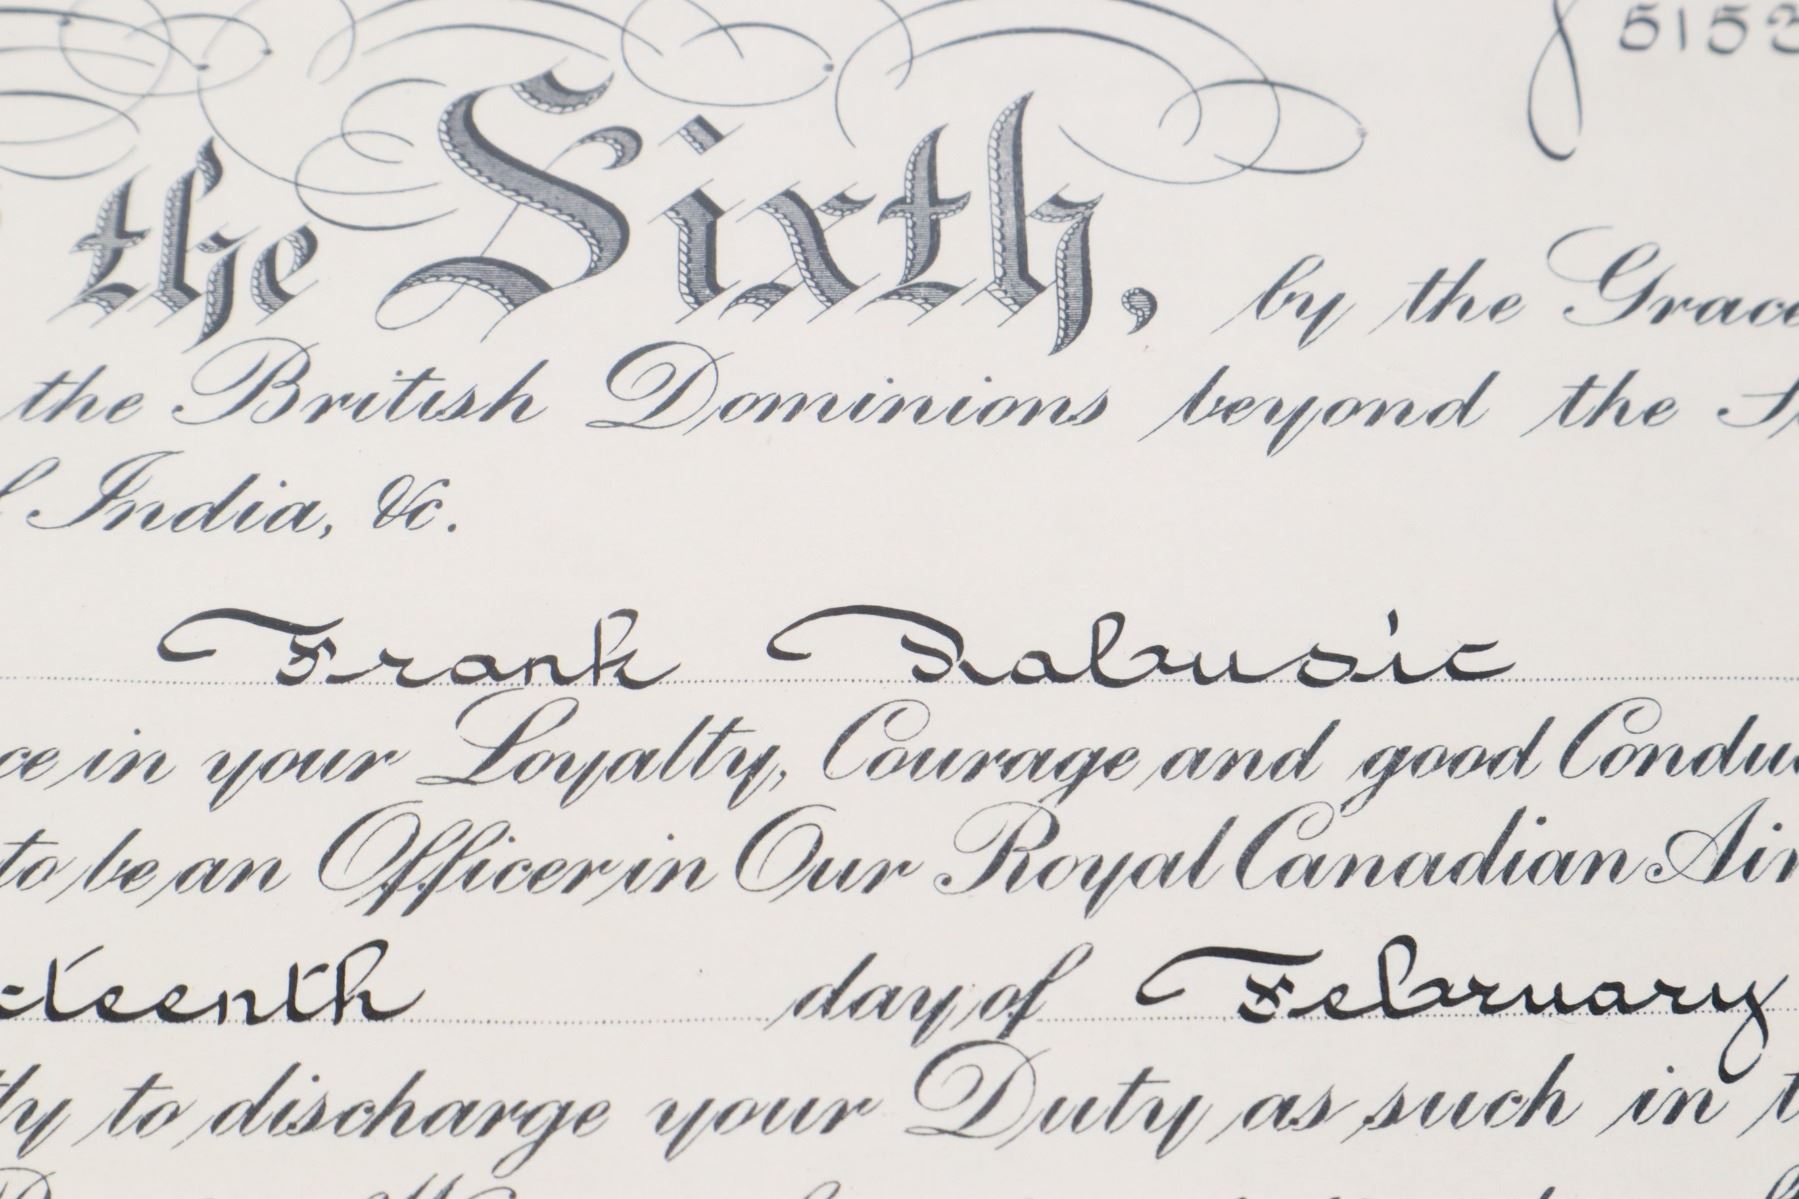 5153
the Sixth, by the Grace
the British Dominions beyond the
India, &c.
Frank Rabusic
ce in your Loyalty, Courage and good Condu
to be an Officer in Our Royal Canadian Air
teenth day of February
tly to discharge your Duty as such in t